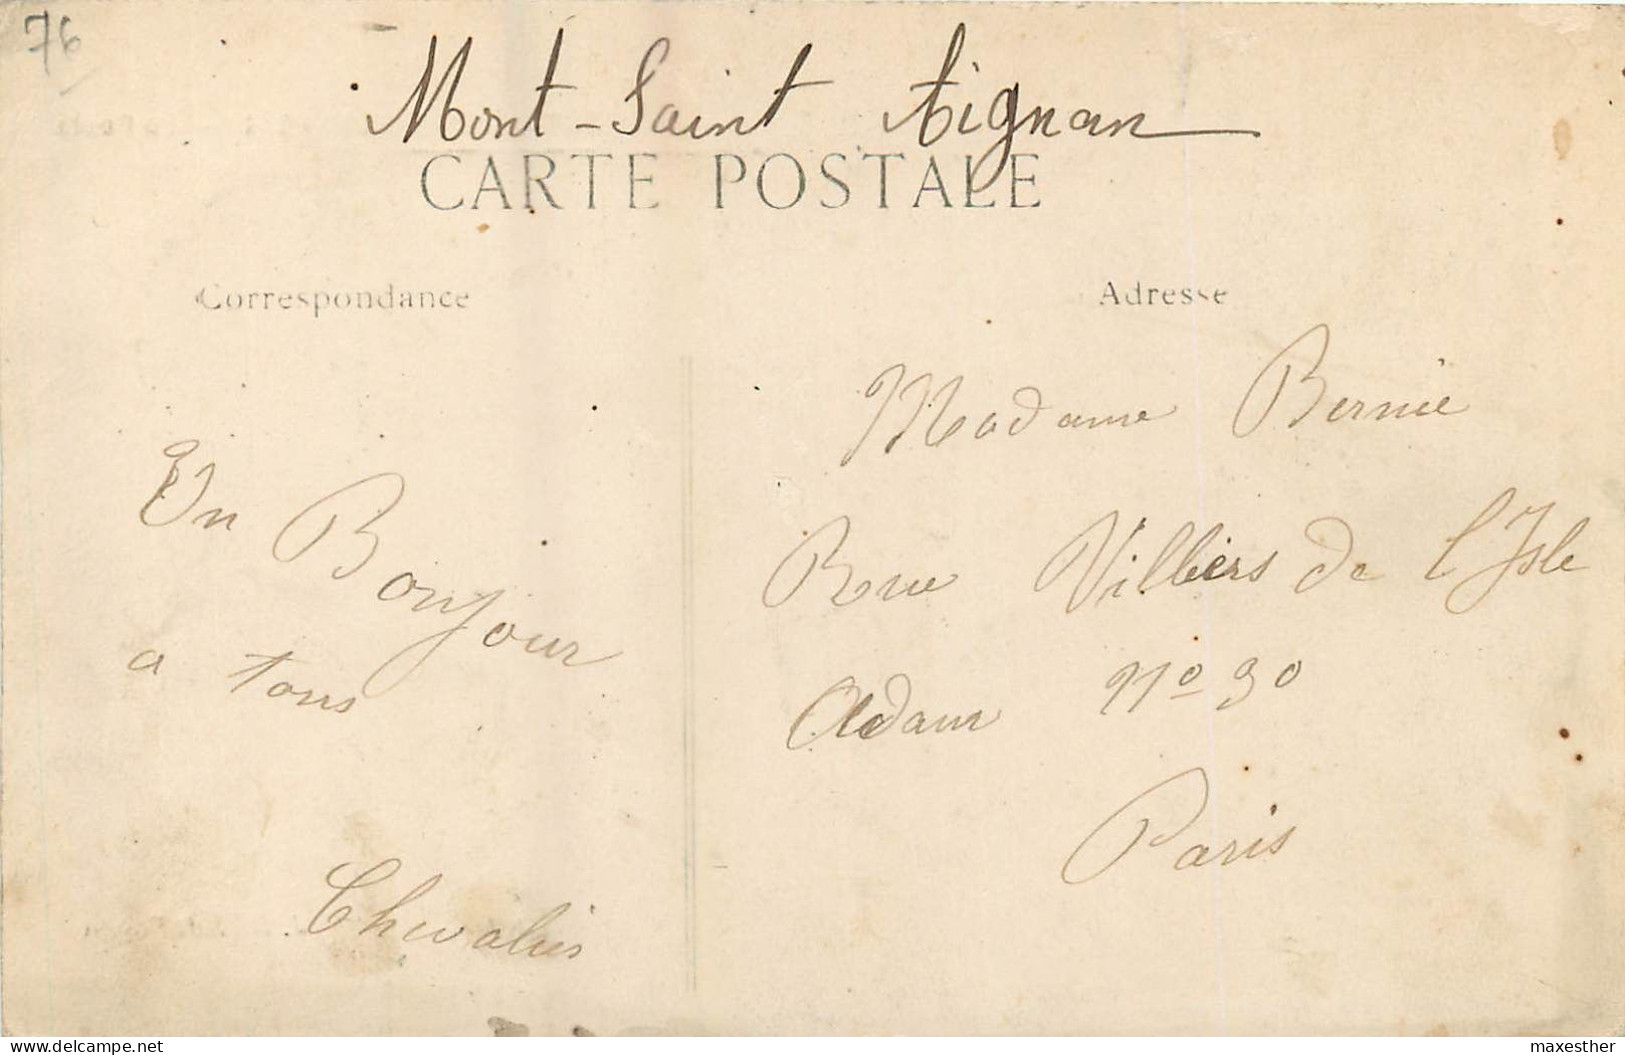 76
Mont-Saint Aignan
CARTE POSTALE
Correspondance
Adresse
Un Bonjour
a tous
Chevalier
Madame Bernie
Rue Villiers de l'Isle
Adam N° 30
Paris
delcampe.net
maxesther